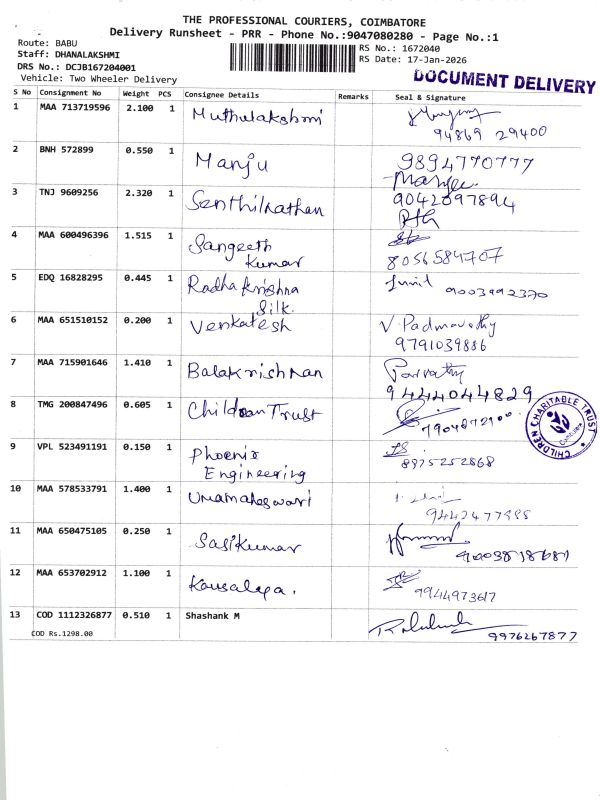 THE PROFESSIONAL COURIERS, COIMBATORE
Delivery Runsheet - PRR - Phone No.:9047080280 - Page No.:1
Route: BABU
Staff: DHANALAKSHMI
DRS No.: DCJB167204001
Vehicle: Two Wheeler Delivery
RS No.: 1672040
RS Date: 17-Jan-2026
DOCUMENT DELIVERY
S No Consignment No Weight PCS Consignee Details Remarks Seal & Signature
1 MAA 713719596 2.100 1 Muthulakshmi
94869 29400
2 BNH 572899 0.550 1 Manju 9894770777
Manju
3 TNJ 9609256 2.320 1 Senthilnathan 9042097894
4 MAA 600496396 1.515 1 Sangeeth
Kumar 8056584707
5 EDQ 16828295 0.445 1 Radha Krishna
Silk. 9003992370
6 MAA 651510152 0.200 1 Venkatesh V. Padmavathy
9791039886
7 MAA 715901646 1.410 1 Balakrishnan Parvathy
9444044829
8 TMG 200847496 0.605 1 Children Trust
CHILDREN CHARITABLE TRUST
9 VPL 523491191 0.150 1 Phoenix
Engineering 8975252868
10 MAA 578533791 1.400 1 Umamaheswari
11 MAA 650475105 0.250 1 Sasikumar
12 MAA 653702912 1.100 1 Kousalya.
9944973617
13 COD 1112326877 0.510 1 Shashank M
COD Rs.1298.00
9976267877